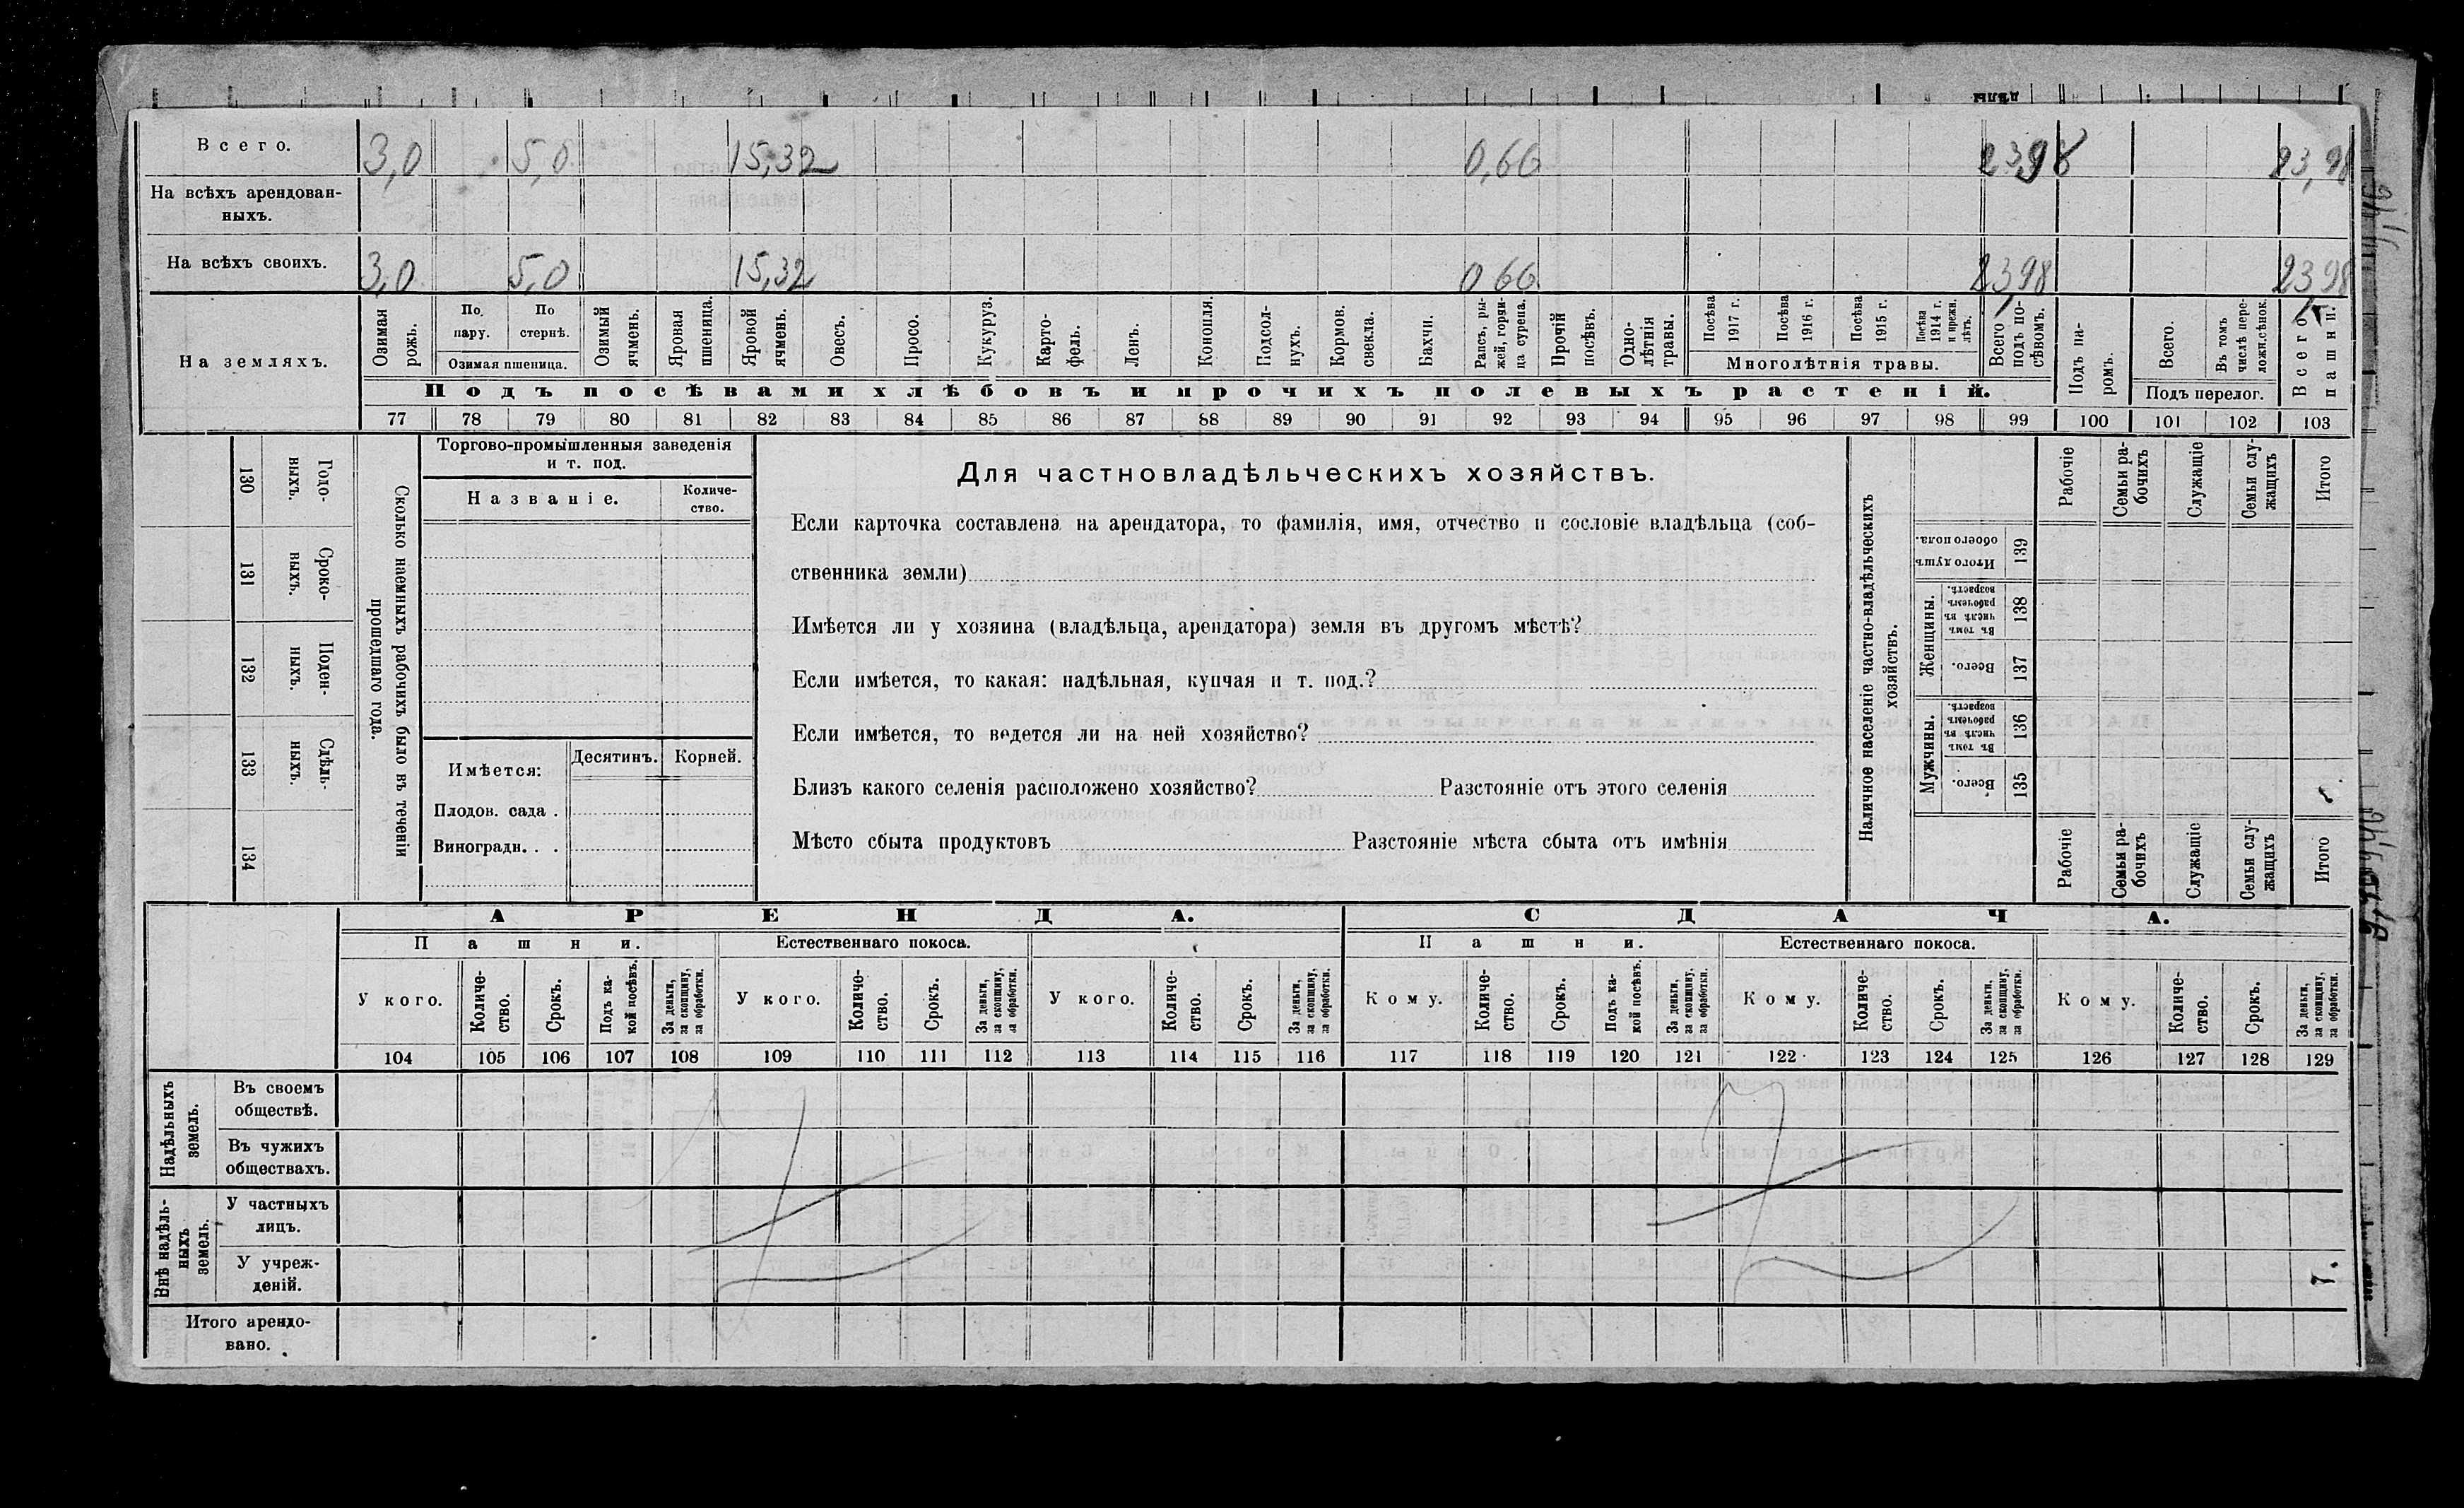 Всего. 3,0 5,0 15,32 0,66 23,98 23,98
На всѣхъ арендован-
ныхъ.
На всѣхъ своихъ. 3,0 5,0 15,32 0 66 23 98 23 98
На земляхъ.
Озимая рожь.
По пару.
По стернѣ.
Озимая пшеница.
Озимый ячмень.
Яровая пшеница.
Яровой ячмень.
Овесъ.
Просо.
Кукуруз.
Карто-
фель.
Ленъ.
Конопля.
Подсол-
нухъ.
Кормов.
свекла.
Бахчи.
Рапсъ, ры-
жей, горчи-
ца сурепа.
Прочій
посѣвъ.
Одно-
лѣтнія
травы.
Посѣва
1917 г.
Посѣва
1916 г.
Посѣва
1915 г.
Посѣва
1914 г.
и прежн.
лѣтъ.
Многолѣтнія травы.
Всего
подъ по-
сѣвомъ.
Подъ па-
ромъ.
Всего.
Въ томъ
числѣ пере-
ложн.сѣнок.
Подъ перелог.
Всего
пашни.
Подъ посѣвами хлѣбовъ и прочихъ полевыхъ растеній.
77 78 79 80 81 82 83 84 85 86 87 88 89 90 91 92 93 94 95 96 97 98 99 100 101 102 103
Сколько наемныхъ рабочихъ было въ теченіи
прошедшаго года.
Годо-
выхъ.
130
Сроко-
выхъ.
131
Поден-
ныхъ.
132
Сдѣль-
ныхъ.
133
134
Торгово-промышленныя заведенія
и т. под.
Названіе.
Количе-
ство.
Имѣется:
Десятинъ. Корней.
Плодов. сада .
Виноградн. . .
Для частновладѣльческихъ хозяйствъ.
Если карточка составлена на арендатора, то фамилія, имя, отчество и сословіе владѣльца (соб-
ственника земли)
Имѣется ли у хозяина (владѣльца, арендатора) земля въ другомъ мѣстѣ?
Если имѣется, то какая: надѣльная, купчая и т. под.?
Если имѣется, то ведется ли на ней хозяйство?
Близъ какого селенія расположено хозяйство? Разстояніе отъ этого селенія
Мѣсто сбыта продуктовъ Разстояніе мѣста сбыта отъ имѣнія
Наличное населеніе частно-владѣльческихъ
хозяйствъ.
Рабочіе
Семьи ра-
бочихъ
Служащіе
Семьи слу-
жащихъ
Итого
Итого душъ
обоего пола.
139
Женщины.
Въ томъ
числѣ въ
рабочемъ
возрастѣ.
138
Всего.
137
Мужчины.
Въ томъ
числѣ въ
рабочемъ
возрастѣ.
136
Всего.
135
Рабочіе
Семьи ра-
бочихъ
Служащіе
Семьи слу-
жащихъ
Итого
АРЕНДА. СДАЧА.
Пашни. Естественнаго покоса. Пашни. Естественнаго покоса.
У кого.
Количе-
ство.
Срокъ.
Подъ ка-
кой посѣвъ.
За деньги,
за скопщину,
за обработки.
У кого.
Количе-
ство.
Срокъ.
За деньги,
за скопщину,
за обработки.
У кого.
Количе-
ство.
Срокъ.
За деньги,
за скопщину,
за обработки.
Кому.
Количе-
ство.
Срокъ.
Подъ ка-
кой посѣвъ.
За деньги,
за скопщину,
за обработки.
Кому.
Количе-
ство.
Срокъ.
За деньги,
за скопщину,
за обработки.
Кому.
Количе-
ство.
Срокъ.
За деньги,
за скопщину,
за обработки.
104 105 106 107 108 109 110 111 112 113 114 115 116 117 118 119 120 121 122 123 124 125 126 127 128 129
Надѣльныхъ
земель.
Въ своемъ
обществѣ.
Въ чужихъ
обществахъ.
Внѣ надѣль-
ныхъ
земель.
У частныхъ
лицъ.
У учреж-
деній.
Итого арендо-
вано.